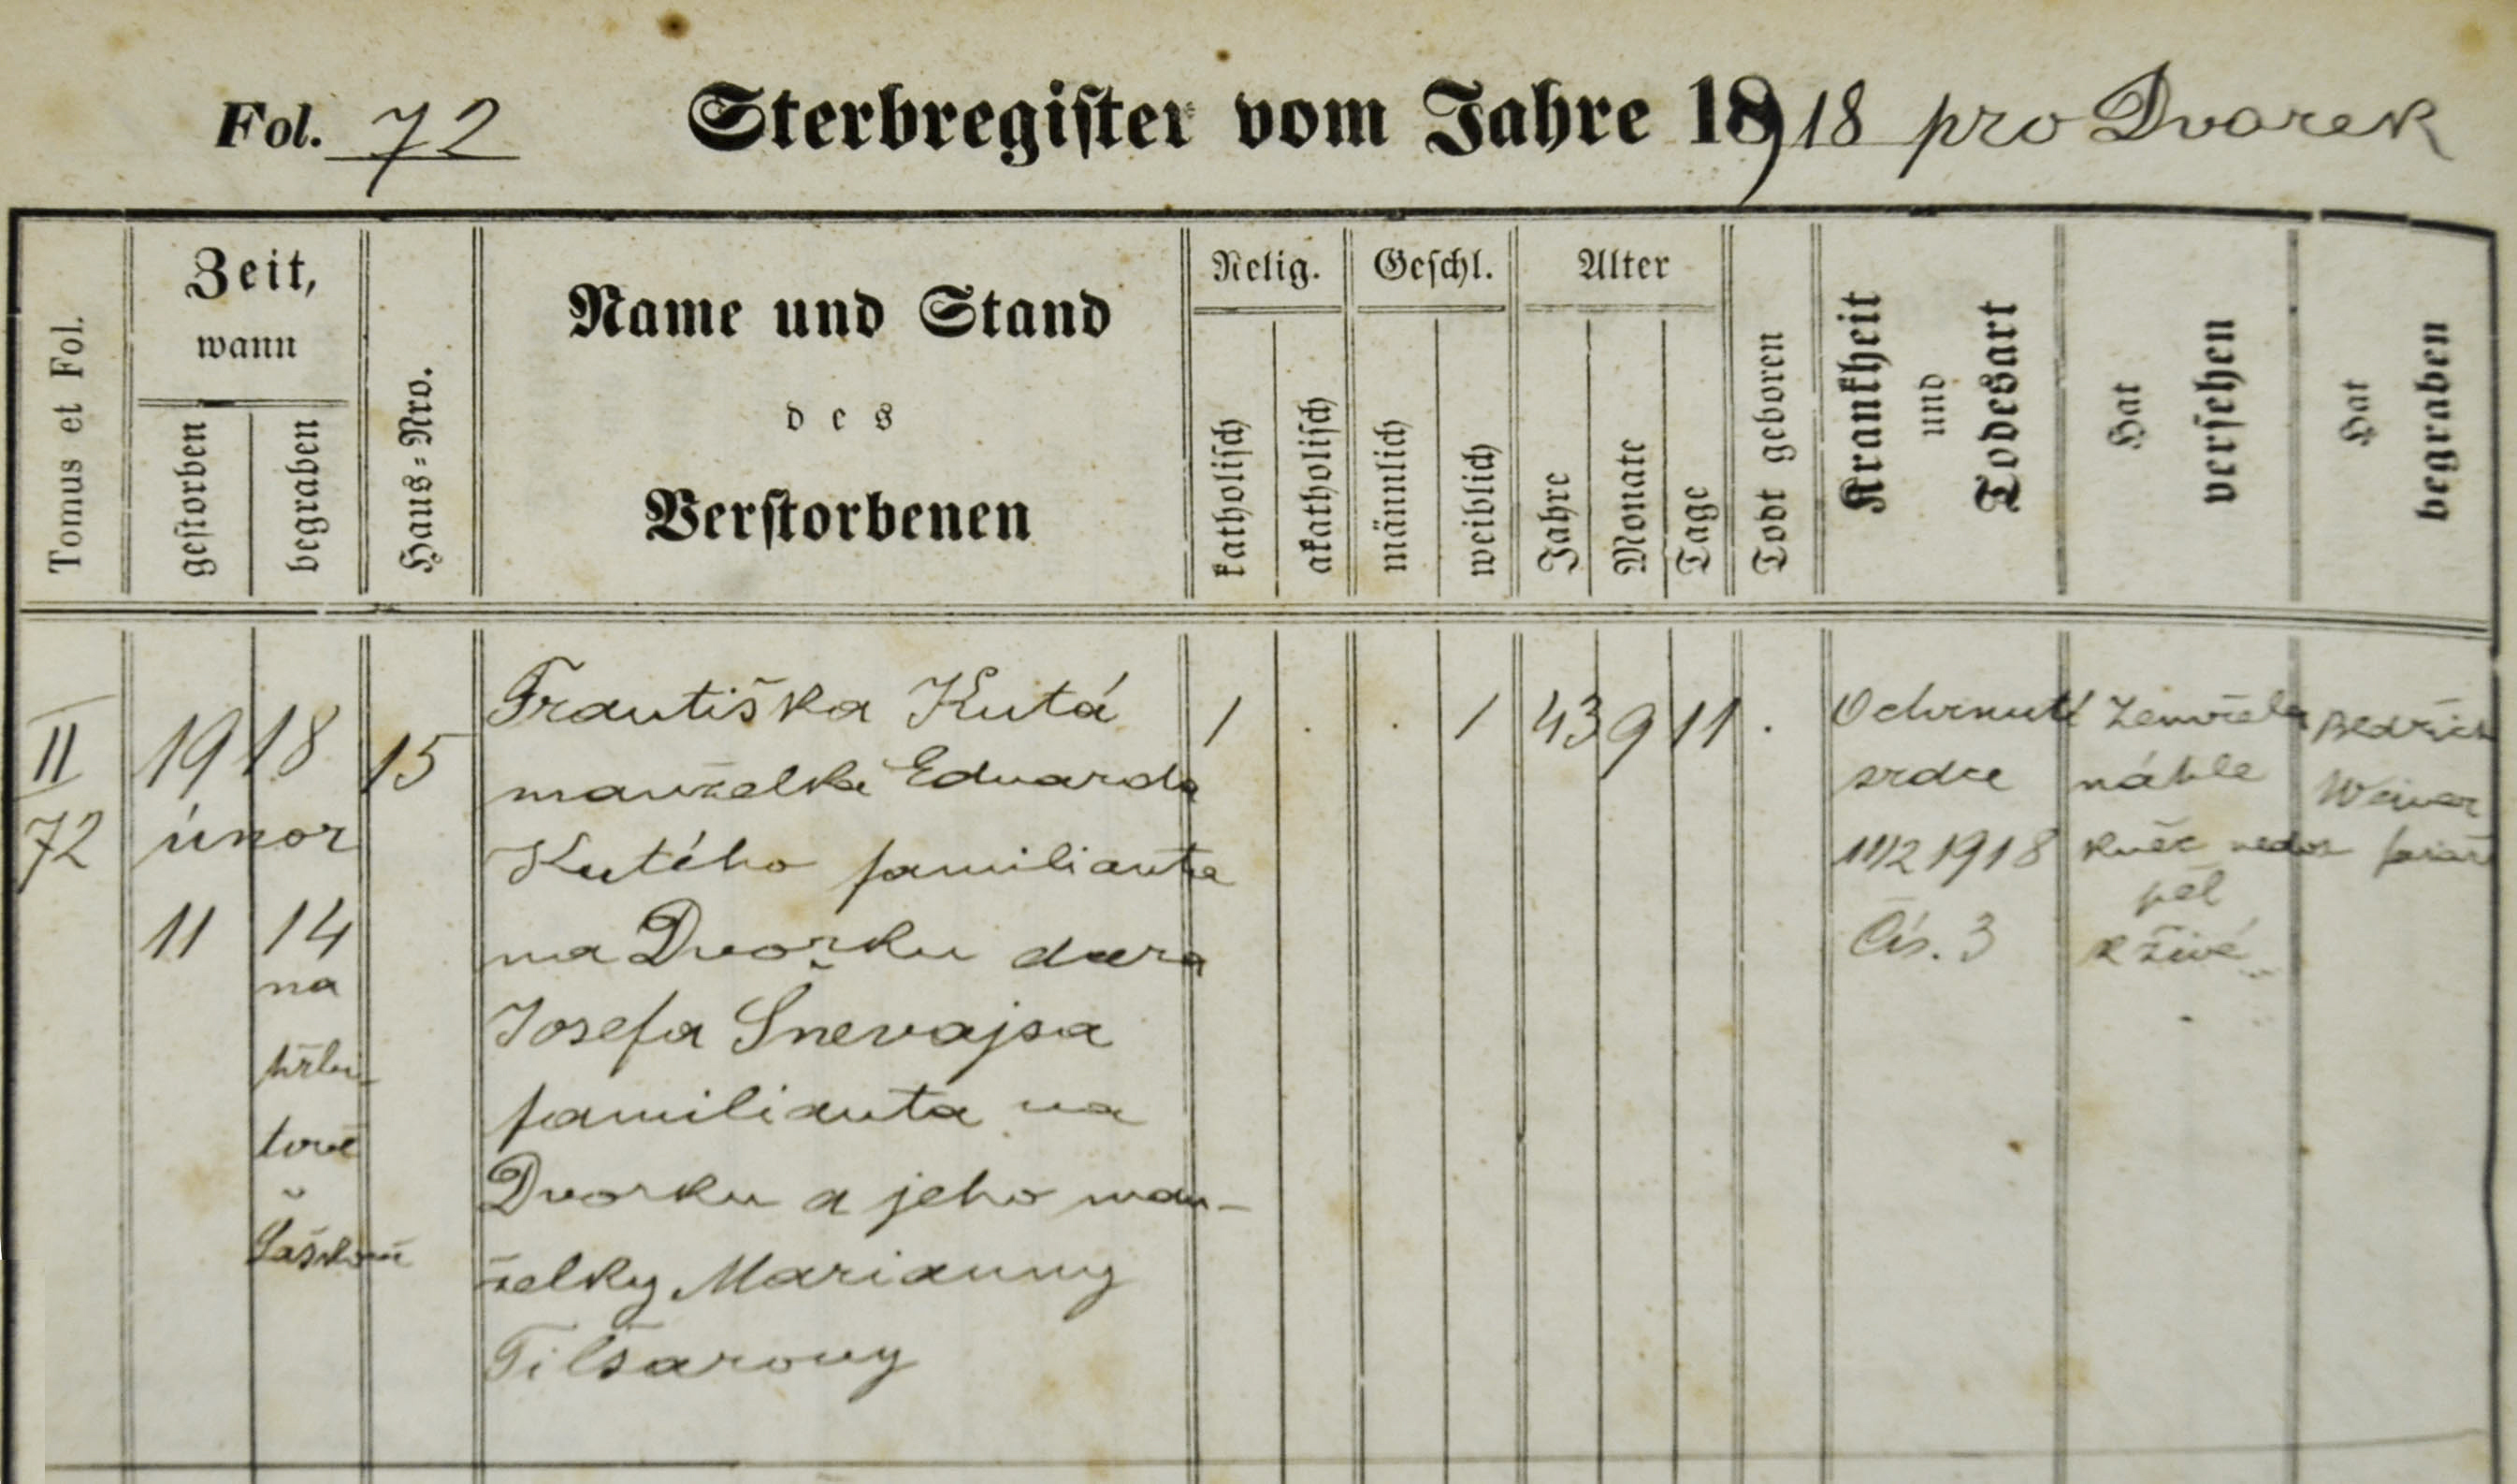 Fol. 72 Sterbregister vom Jahre 1918 pro Dvorek
Tomus et Fol.
Zeit,
wann
gestorben
begraben
Haus-Nro.
Name und Stand
des
Verstorbenen
Relig.
katholisch
akatholisch
Geschl.
männlich
weiblich
Alter
Jahre
Monate
Tage
Todt geboren
Krankheit
und
Todesart
Hat
versehen
Hat
begraben
II
72
1918
únor
11 14
na
hřbi-
tově
15
Františka Kutá
manželka Eduarda
Kutého familianta
na Dvorku dcera
Josefa Šnevajsa
familianta na
Dvorku a jeho man-
želky Marianny
Tilšarovy
1 . . 1 43 9 11 .
Ochrnutí
srdce
11/2 1918
Čís. 3
Zemřela
náhle
kněz nedos
pěl
k živé
Bedřich
Weiner
farář